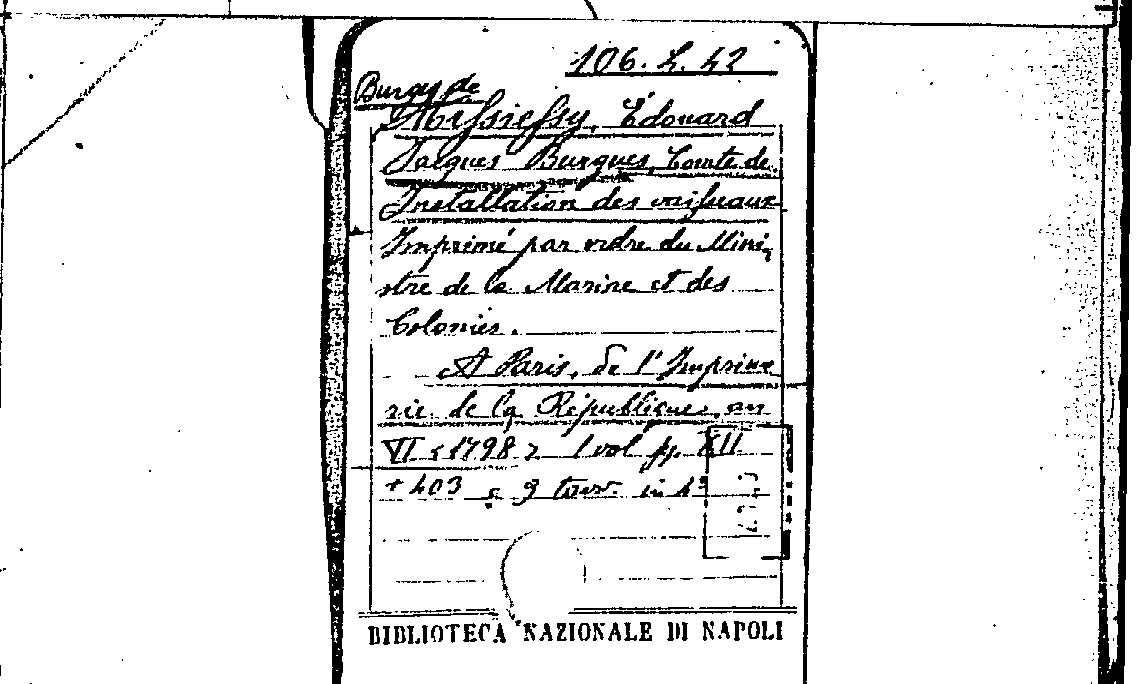 106. L. 42
Burgues de
Missiessy, Édouard
Jacques Burgues, Comte de
Installation des vaisseaux
Imprimé par ordre du Mini,
stre de la Marine et des
Colonies.
A Paris, de l'Imprime
rie de la République, an
VI <1798> 1 vol pp. XII
+ 403 e 9 tavv. in 4º
BIBLIOTECA NAZIONALE DI NAPOLI